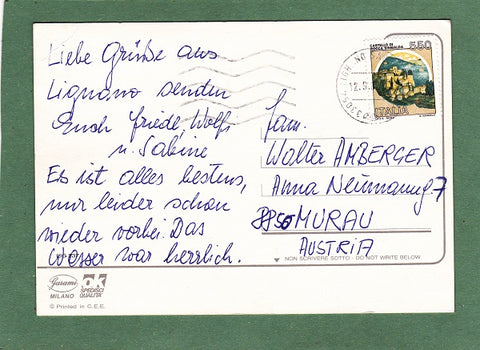 Liebe Grüsse aus
Lignano senden
Euch Friede, Wolfi
u. Sabine
Es ist alles bestens,
nur leider schon
wieder vorbei. Das
Wasser war herrlich.
Fam.
Walter AMBERGER
Anna Neumanng. 7
8850 MURAU
AUSTRIA
CASTELLO DI
ROCCA SINIBALDA
550
ITALIA
12.9.
NON SCRIVERE SOTTO - DO NOT WRITE BELOW
Garami
MILANO
SPECIFICI
QUALITA'
© Printed in C.E.E.